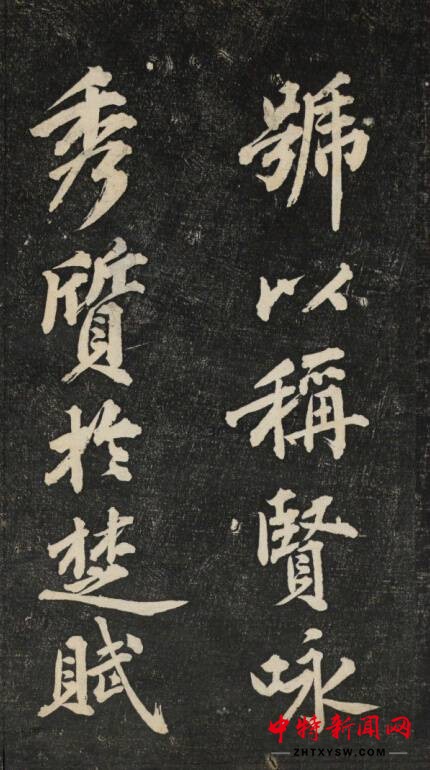 號以稱賢詠
秀質於楚賦
中特新闻网
ZHTXYSW.COM